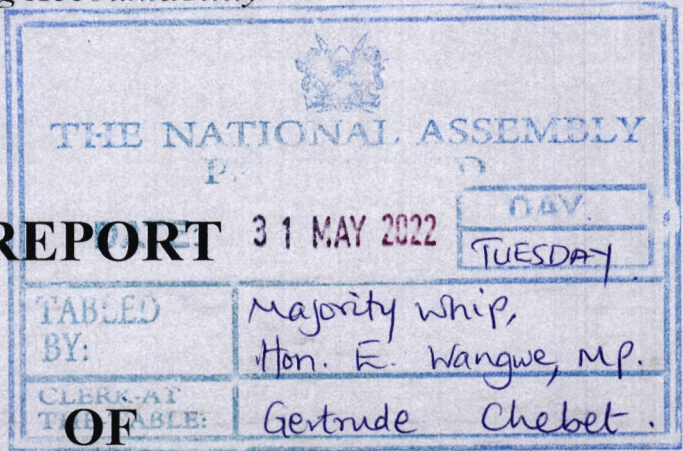 THE NATIONAL ASSEMBLY
REPORT 31 MAY 2022
DAY.
TUESDAY
TABLED BY:
Majority Whip,
Hon. E. Wangwe, MP.
CLERK-AT
THE TABLE:
Gertrude Chebet.
OF